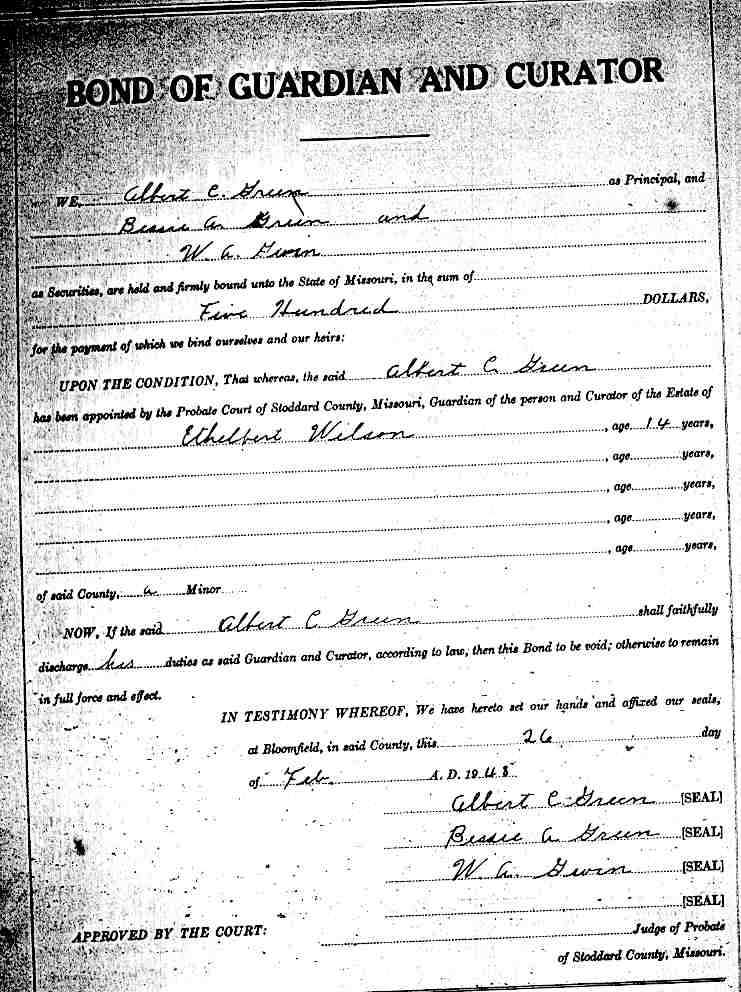 BOND OF GUARDIAN AND CURATOR
WE, Albert C. Green as Principal, and
Bessie A. Green and
W. A. Gwin
as Securities, are held and firmly bound unto the State of Missouri, in the sum of
Five Hundred DOLLARS,
for the payment of which we bind ourselves and our heirs:
UPON THE CONDITION, That whereas, the said Albert C Green
has been appointed by the Probate Court of Stoddard County, Missouri, Guardian of the person and Curator of the Estate of
Ethelbert Wilson, age 14 years,
, age years,
, age years,
, age years,
, age years,
of said County, a Minor
NOW, If the said Albert C Green shall faithfully
discharge his duties as said Guardian and Curator, according to law, then this Bond to be void; otherwise to remain
in full force and effect.
IN TESTIMONY WHEREOF, We have hereto set our hands and affixed our seals,
at Bloomfield, in said County, this 26 day
of Feb. A. D. 19
Albert C. Green [SEAL]
Bessie A Green [SEAL]
W. A. Gwin [SEAL]
[SEAL]
APPROVED BY THE COURT:
Judge of Probate
of Stoddard County, Missouri.